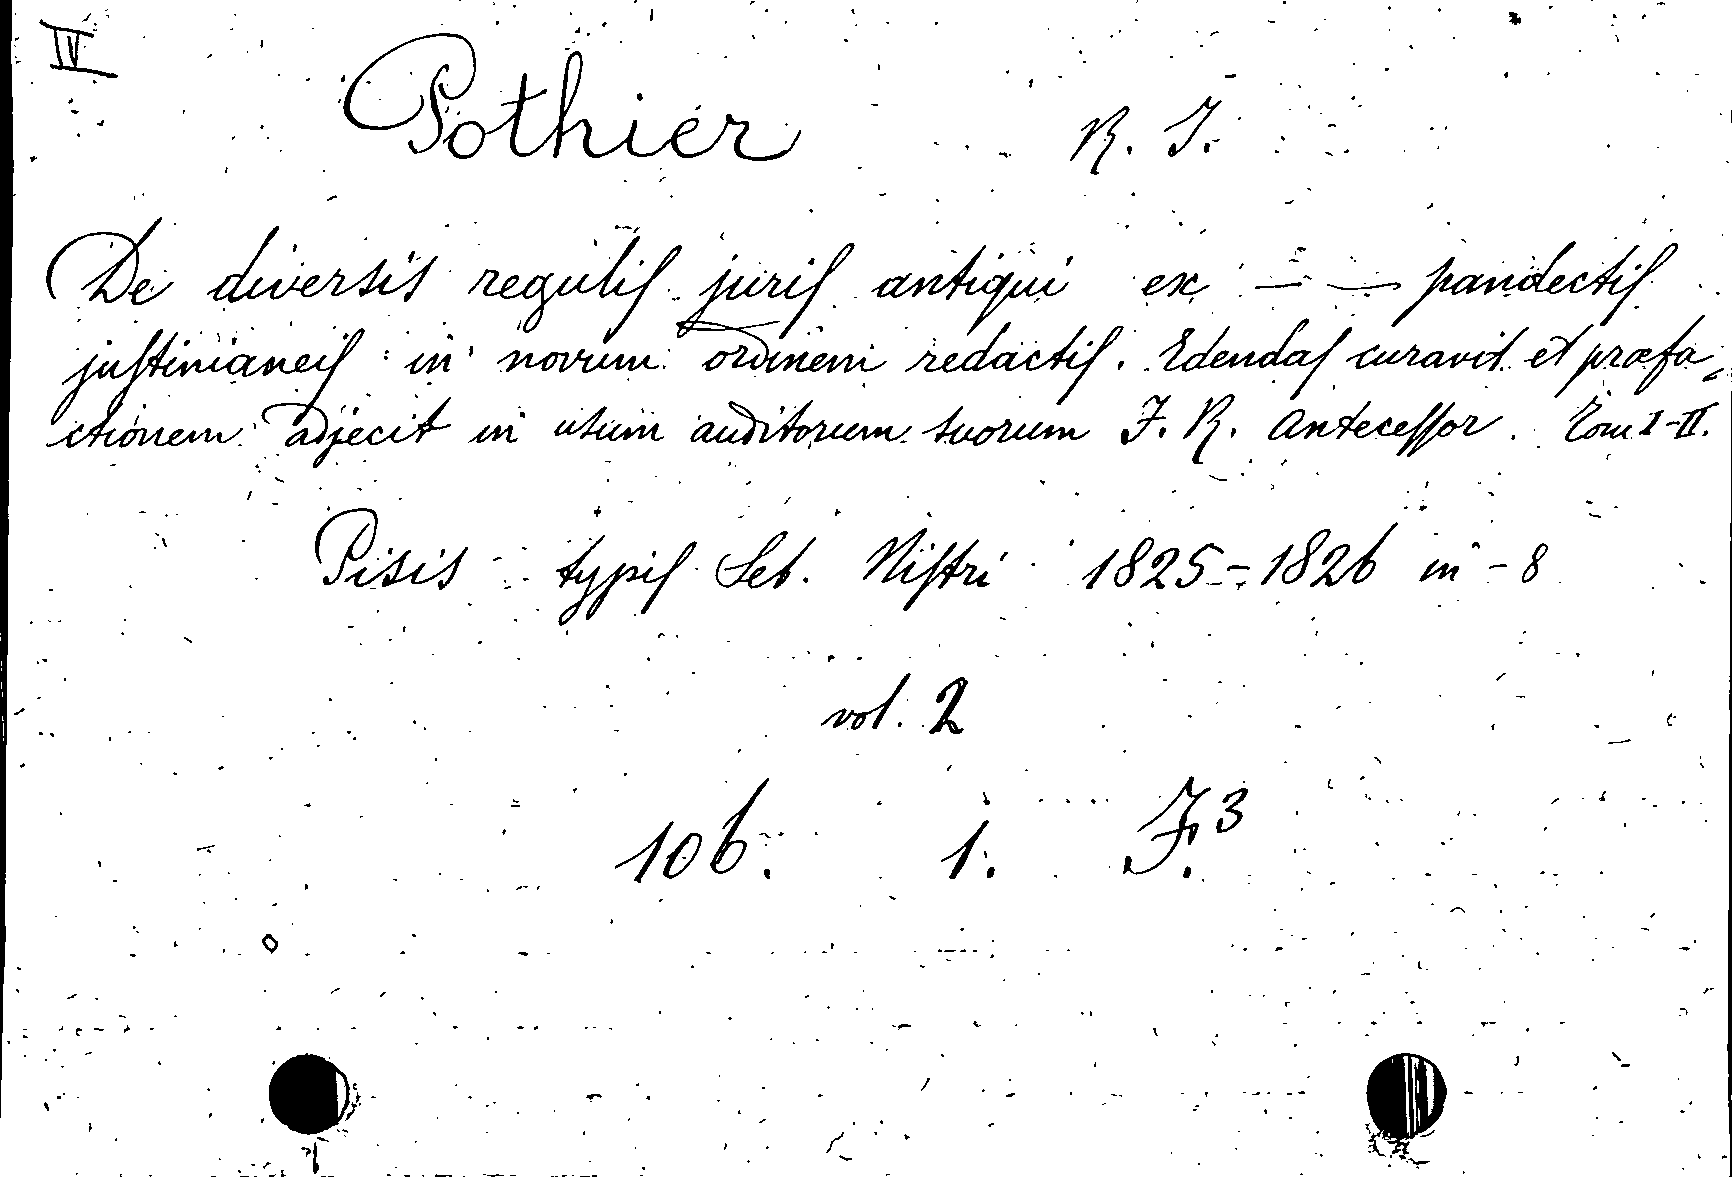 IV
Pothier R. J.
De diversis regulis juris antiqui ex — — pandectis
justinianeis in novum ordinem redactis. Edendas curavit et præfa„
ctionem adjecit in usum auditorum suorum F. R. Antecessor. Tom I-II.
Pisis typis Seb. Nistri 1825-1826 in-8
vol. 2
106. 1. F.3